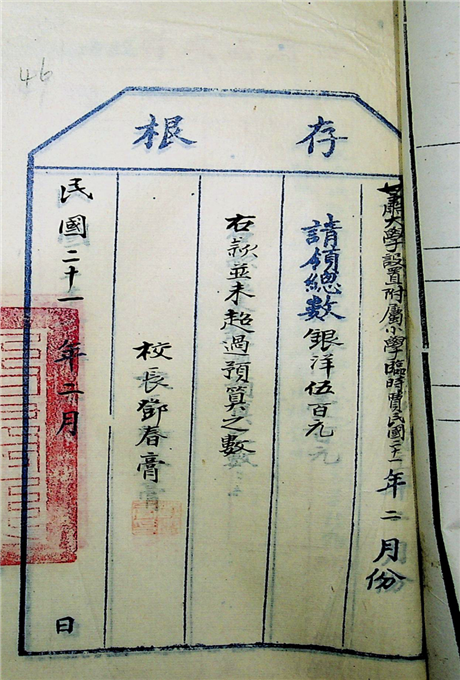 46
存根
甘肅大學設置附屬小學臨時費民國二十一年二月份
請領總數銀洋伍百元元
右款並未超過預算之數
校長鄧春膏
民國二十一年二月 日